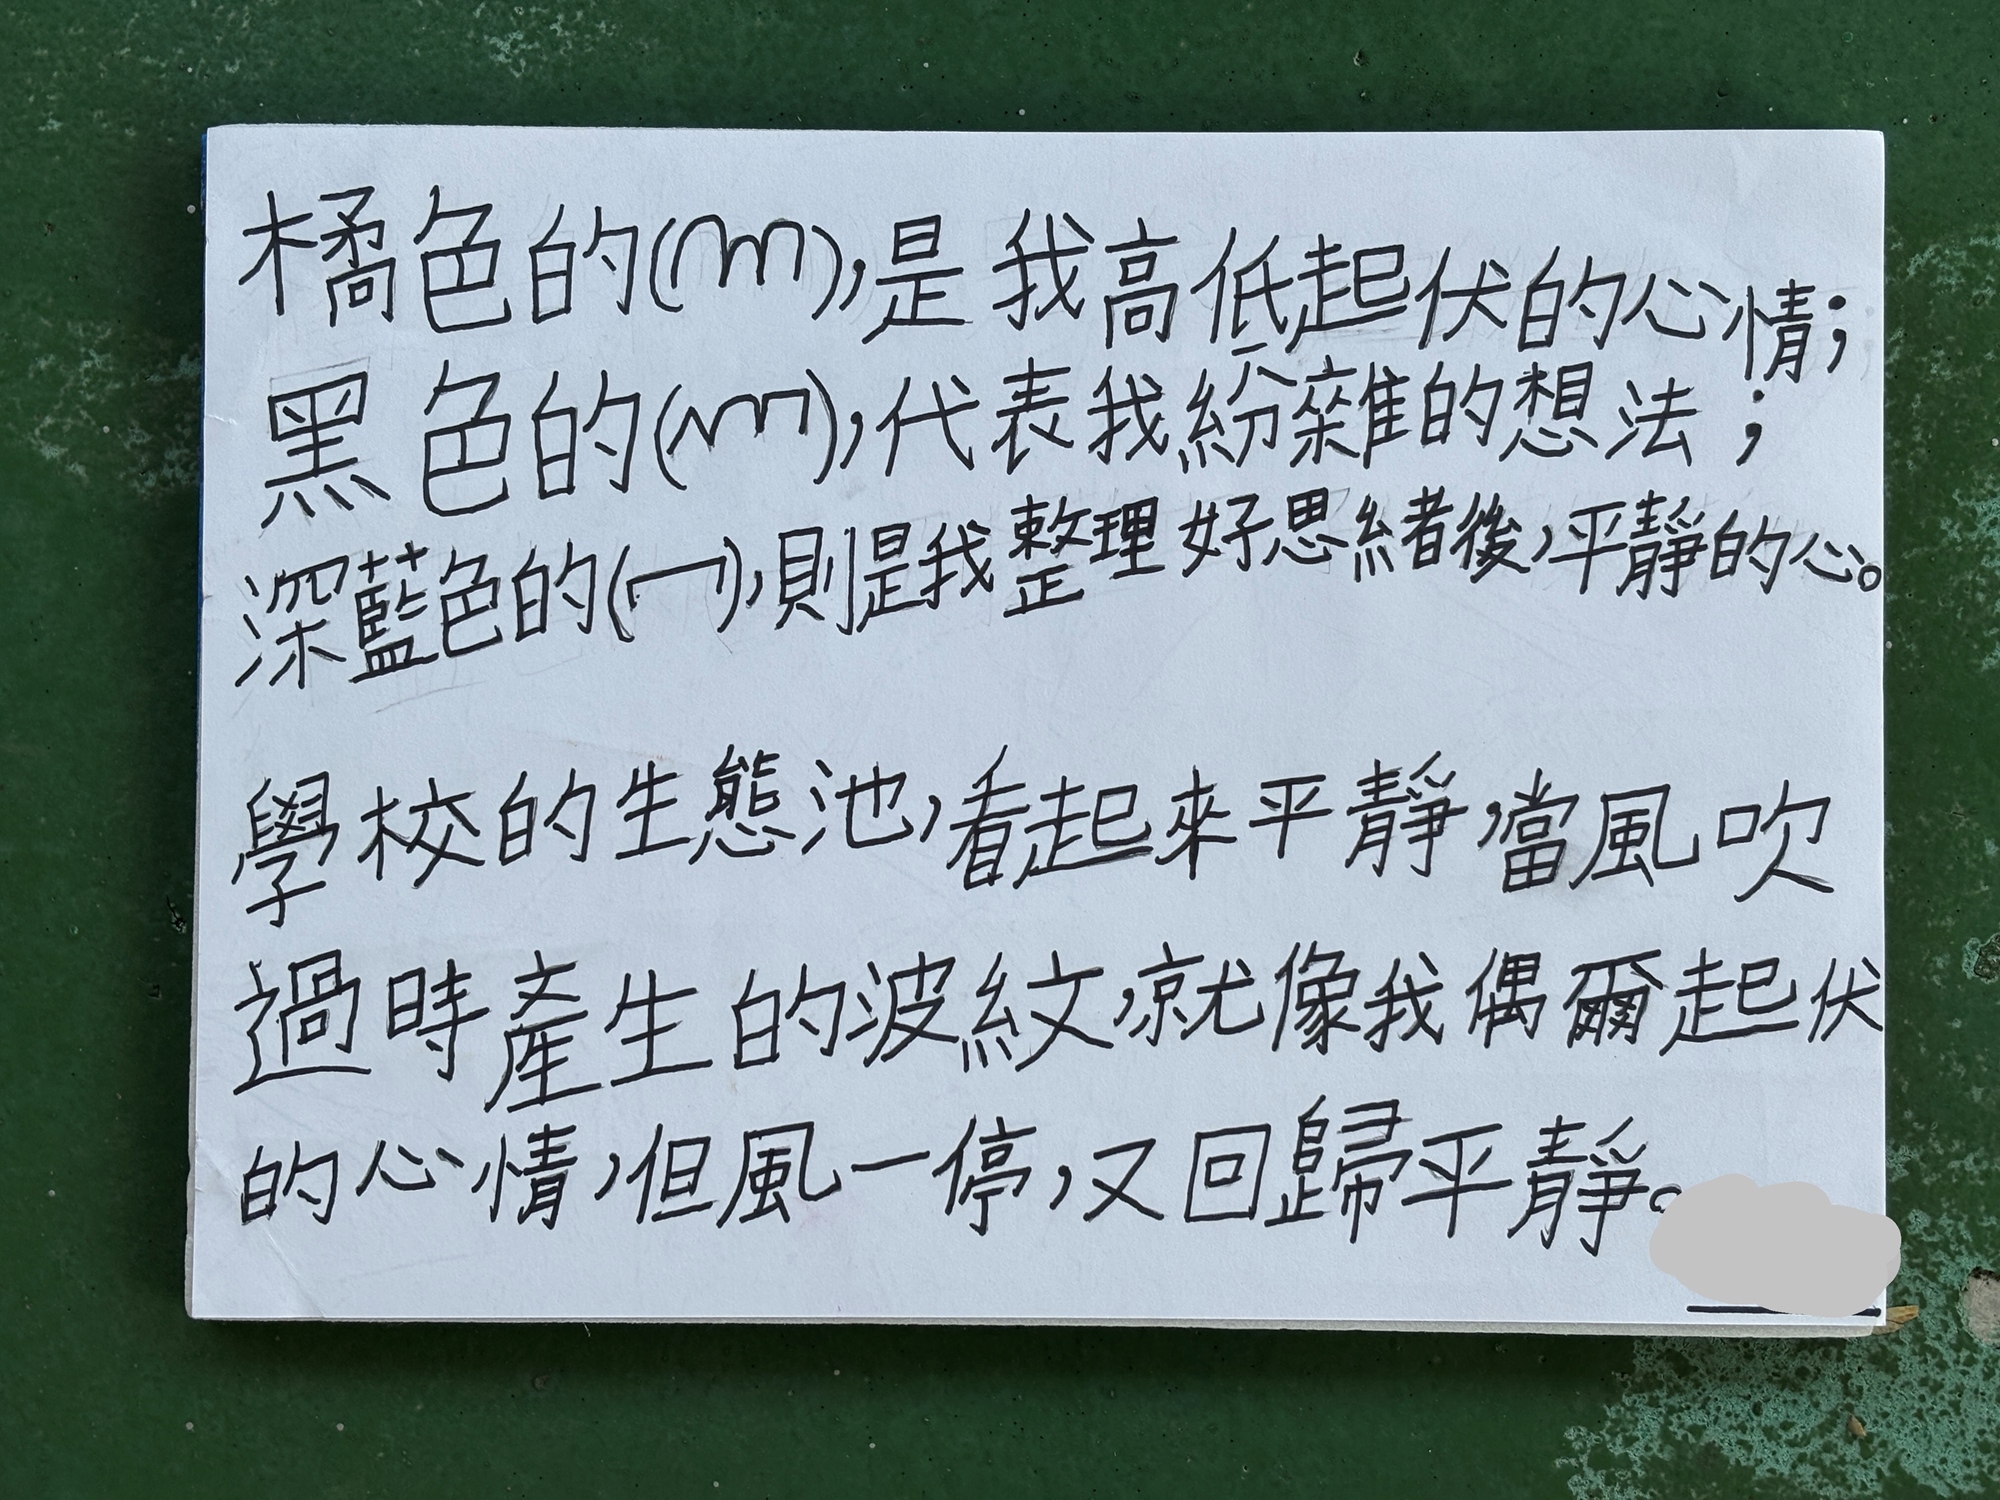 橘色的( ),是我高低起伏的心情;
黑色的( ),代表我紛雜的想法;
深藍色的( ),則是我整理好思緒後,平靜的心。
學校的生態池,看起來平靜,當風吹
過時產生的波紋,就像我偶爾起伏
的心情,但風一停,又回歸平靜。